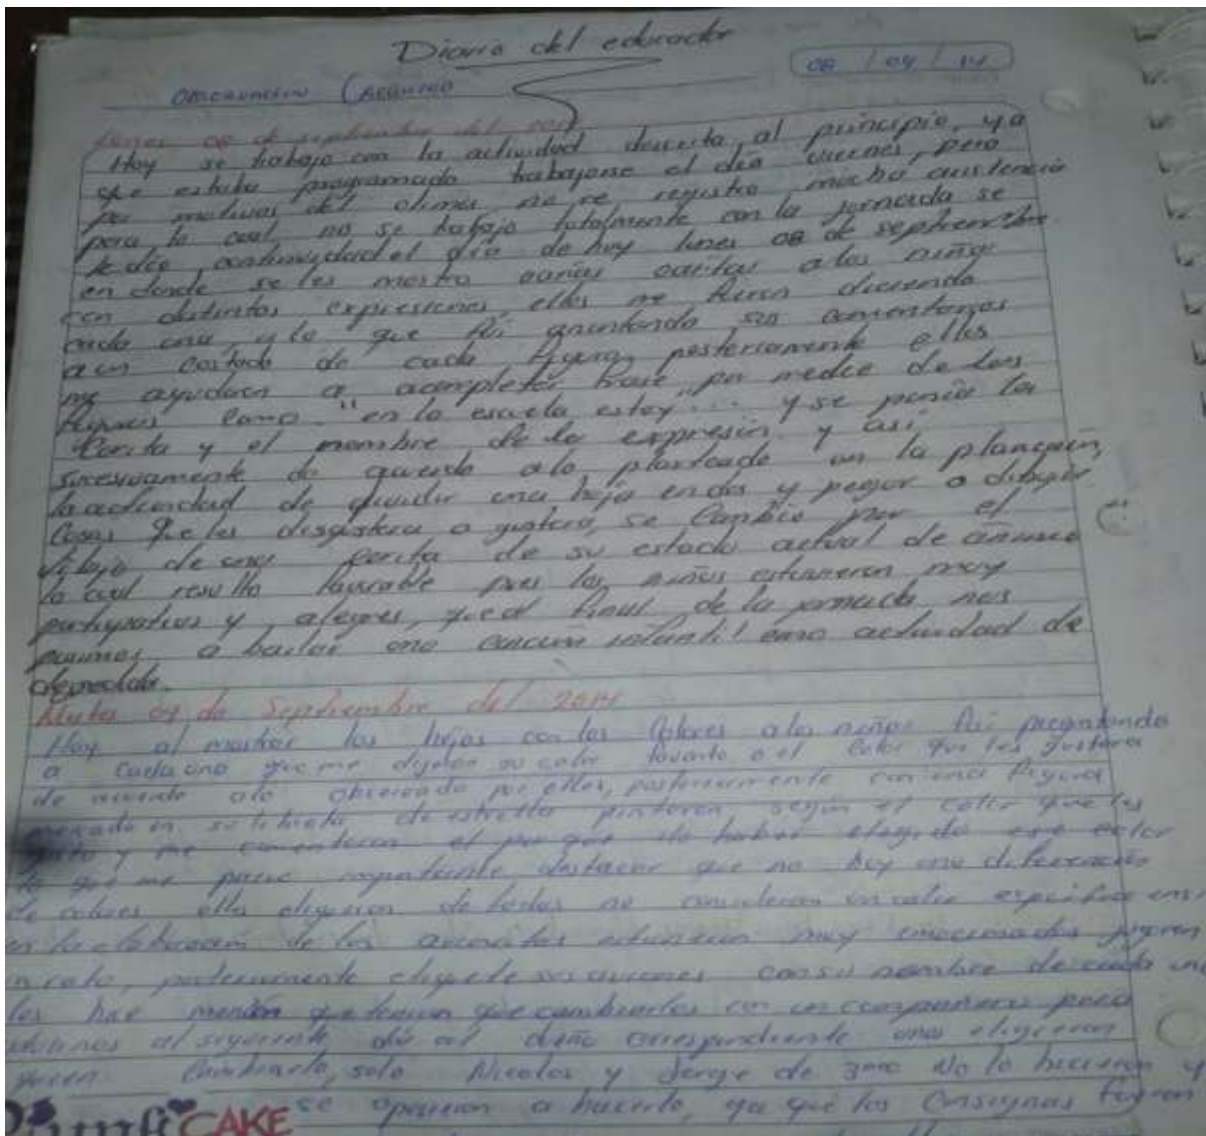 Diario del educador
08 / 09 / 14
OBSERVACION
Lunes 08 de septiembre del 2014
Hoy se trabajo con la actividad descrita al principio, ya
que estaba programado trabajarse el dia viernes, pero
por motivos del clima no se registro mucha asistencia
para lo cual no se trabajo totalmente con la jornada se
le dio continuidad el dia de hoy lunes 08 de septiembre
en donde se les mostro varias caritas a los niños
con distintas expresiones, ellos me fueron diciendo
cada una, y lo que fui anotando sus comentarios
a un costado de cada figura, posteriormente ellos
me ayudaron a acompletar frase por medio de las
figuras como "en la escuela estoy"... y se ponia la
carita y el nombre de la expresin y asi
sucesivamente de acuerdo a lo planteado en la planeación,
la actividad de dividir una hoja en dos y pegar o dibujar
cosas que les disgustara o gustara, se cambio por el
dibujo de una carita de su estado actual de animo
lo cual resulto favorable pues los niños estuvieron muy
participativos y alegres, que al final de la jornada nos
pusimos a bailar una cancion infantil como actividad de
despedida.
Martes 09 de Septiembre del 2014
Hoy al mostrar las hojas con los colores a los niños fui preguntando
a cada uno que me dijeran su color favorito o el color que les gustara
de acuerdo a lo observado por ellos, posteriormente con una figura
en su libreta de estrella pintaron según el color que les
y me comentaron el por qué de haber elegido ese color
lo que me parece importante destacar que no hay una diferencia
de colores, ellos eligieron de todos no consideran un color especifico
en la elaboración de los avioncitos estuvieron muy emocionados jugaron
un rato, posteriormente etiquete sus aviones con su nombre de cada uno
les hice mención que tenian que cambiarlos con un compañero pero
al siguiente dia al dueño correspondiente unos eligieron
cambiarlo, solo Nicolas y Jorge de 3ero No lo hicieron y
se opusieron a hacerlo, ya que las consignas fueron
CAKE